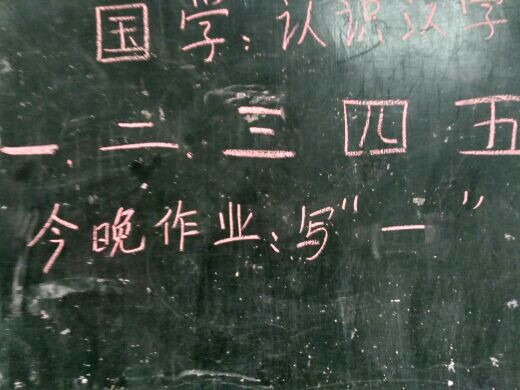 国学:认识汉字
一、二、三 四 五
今晚作业:写“一”